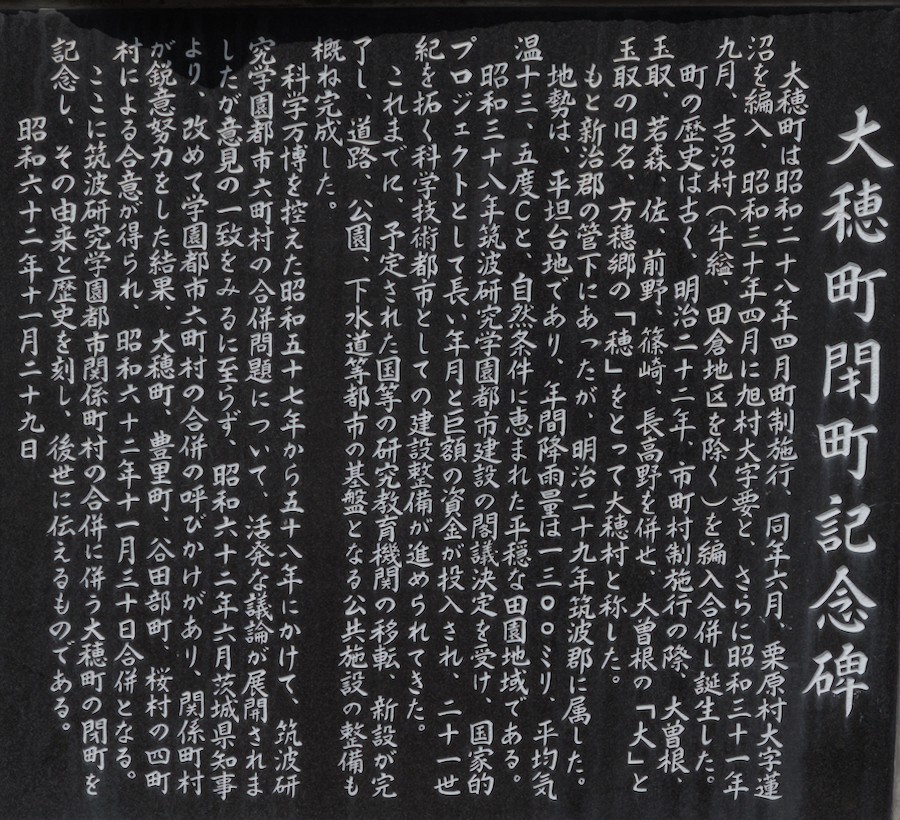 大穂町閉町記念碑
大穂町は昭和二十八年四月町制施行、同年六月、栗原村大字蓮
沼を編入、昭和三十年四月に旭村大字要と、さらに昭和三十一年
九月、吉沼村（牛縊、田倉地区を除く）を編入合併し誕生した。
町の歴史は古く、明治二十二年、市町村制施行の際、大曽根、
玉取、若森、佐、前野、篠崎、長高野を併せ、大曽根の「大」と
玉取の旧名、方穂郷の「穂」をとって大穂村と称した。
もと新治郡の管下にあったが、明治二十九年筑波郡に属した。
地勢は、平坦台地であり、年間降雨量は一三〇〇ミリ、平均気
温十三、五度Cと、自然条件に恵まれた平穏な田園地域である。
昭和三十八年筑波研究学園都市建設の閣議決定を受け、国家的
プロジェクトとして長い年月と巨額の資金が投入され、二十一世
紀を拓く科学技術都市としての建設整備が進められてきた。
これまでに、予定された国等の研究教育機関の移転、新設が完
了し、道路、公園、下水道等都市の基盤となる公共施設の整備も
概ね完成した。
科学万博を控えた昭和五十七年から五十八年にかけて、筑波研
究学園都市六町村の合併問題について、活発な議論が展開されま
したが意見の一致をみるに至らず、昭和六十二年六月茨城県知事
より、改めて学園都市六町村の合併の呼びかけがあり、関係町村
が鋭意努力をした結果、大穂町、豊里町、谷田部町、桜村の四町
村による合意が得られ、昭和六十二年十一月三十日合併となる。
ここに筑波研究学園都市関係町村の合併に併う大穂町の閉町を
記念し、その由来と歴史を刻し、後世に伝えるものである。
昭和六十二年十一月二十九日